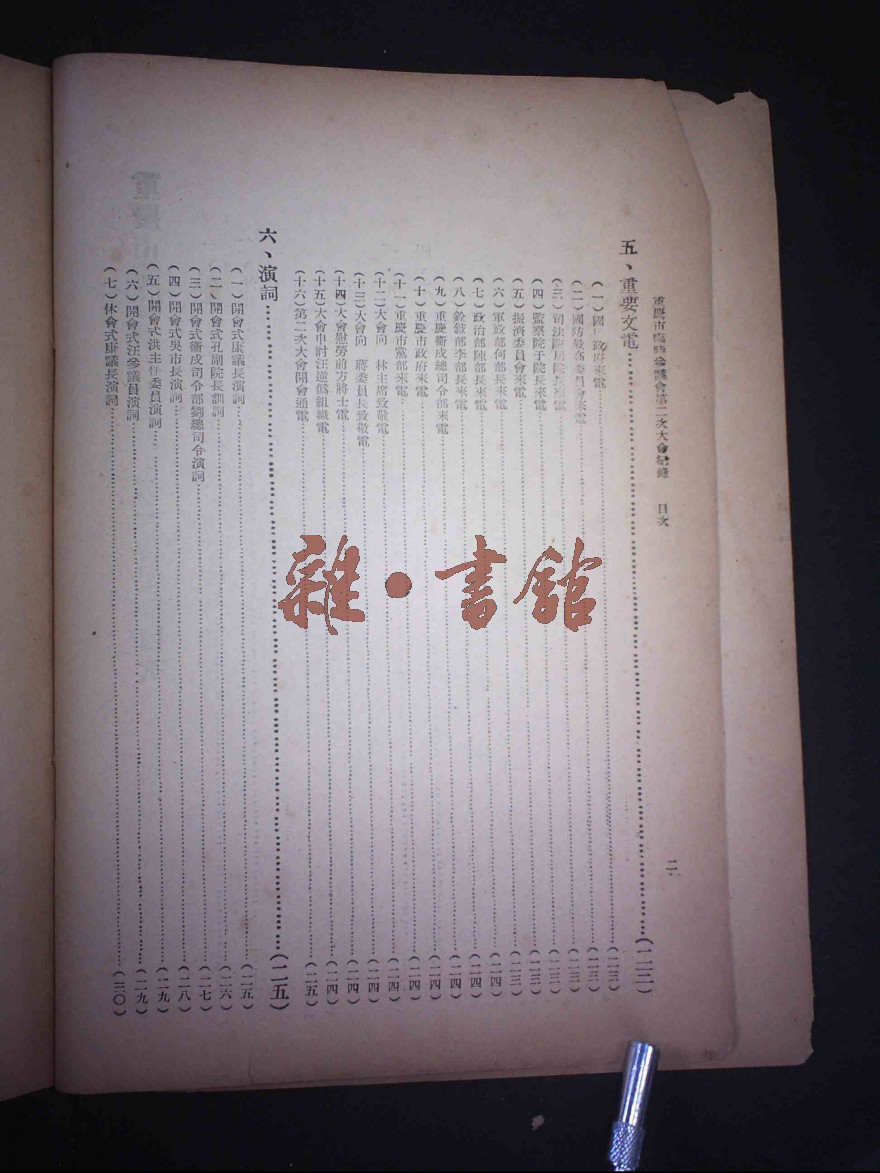 重慶市臨時參議會第二次大會紀錄　目次
二
五、重要文電……(二三)
(一)國 政府來電……(二三)
(二)國防最高委員會來電……(二三)
(三)司法院居院長來電……(二三)
(四)監察院于院長來電……(二三)
(五)振濟委員會來電……(二三)
(六)軍政部何部長來電……(二四)
(七)政治部陳部長來電……(二四)
(八)銓敍部李部長來電……(二四)
(九)重慶衞戍總司令部來電……(二四)
(十)重慶市政府來電……(二四)
(十一)重慶市黨部來電……(二四)
(十二)大會向　林主席致敬電……(二四)
(十三)大會向　蔣委員長致敬電……(二四)
(十四)大會慰勞前方將士電……(二四)
(十五)大會申討汪逆僞組織電……(二四)
(十六)第二次大會開會通電……(二五)
六、演詞……(二五)
(一)開會式康議長演詞……(二五)
(二)開會式孔副院長訓詞……(二六)
(三)開會式衞戍司令部劉總司令演詞……(二七)
(四)開會式吳市長演詞……(二八)
(五)開會式洪主任委員演詞……(二九)
(六)開會式汪參議員演詞……(二九)
(七)休會式康議長演詞……(三〇)
雜·書館